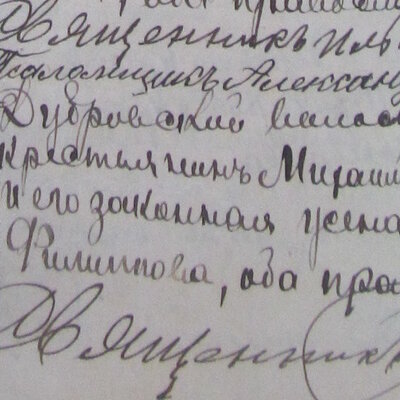 Священникъ Иль
Псаломщикъ Алексан
Дубровской волос
крестьянинъ Михаил
и его законная жена
Филиппова, оба пра
Священник